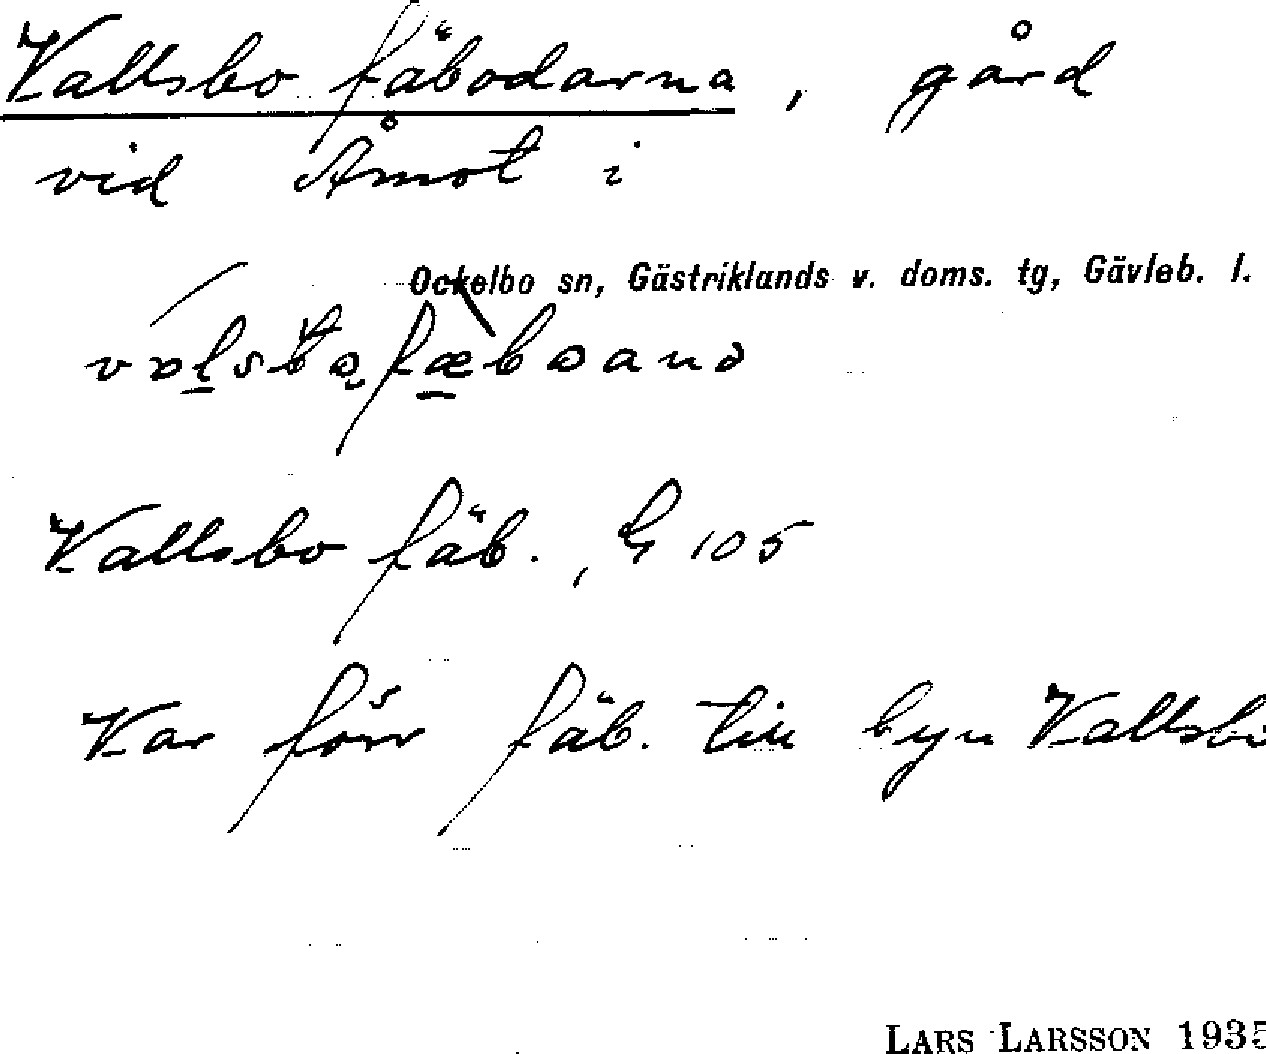 Vallsbo fäbodarna, gård
vid Åmot i
Ockelbo sn, Gästriklands v. doms. tg, Gävleb. l.
Vallsbo fäb., G 105
Var förr fäb. till byn Vallsbo
LARS LARSSON 1935